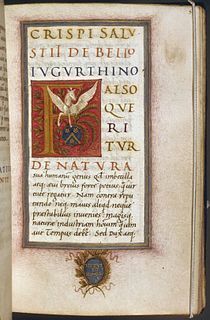 CRISPI SALV
STII DE BELLO
IVGVRTHINO
F ALSO
QVE
RI
TVR
DE NATVRA
sua humanũ genus qđ imbecilla
atq; aeui breuis forte potius quã uir
tute regatur. Nam contra repu
tando neq; maius aliud neque
praestabilius inuenies magisq;
naturae industriam hominum quã
uim aut tempus deesse. Sed Dux atq;